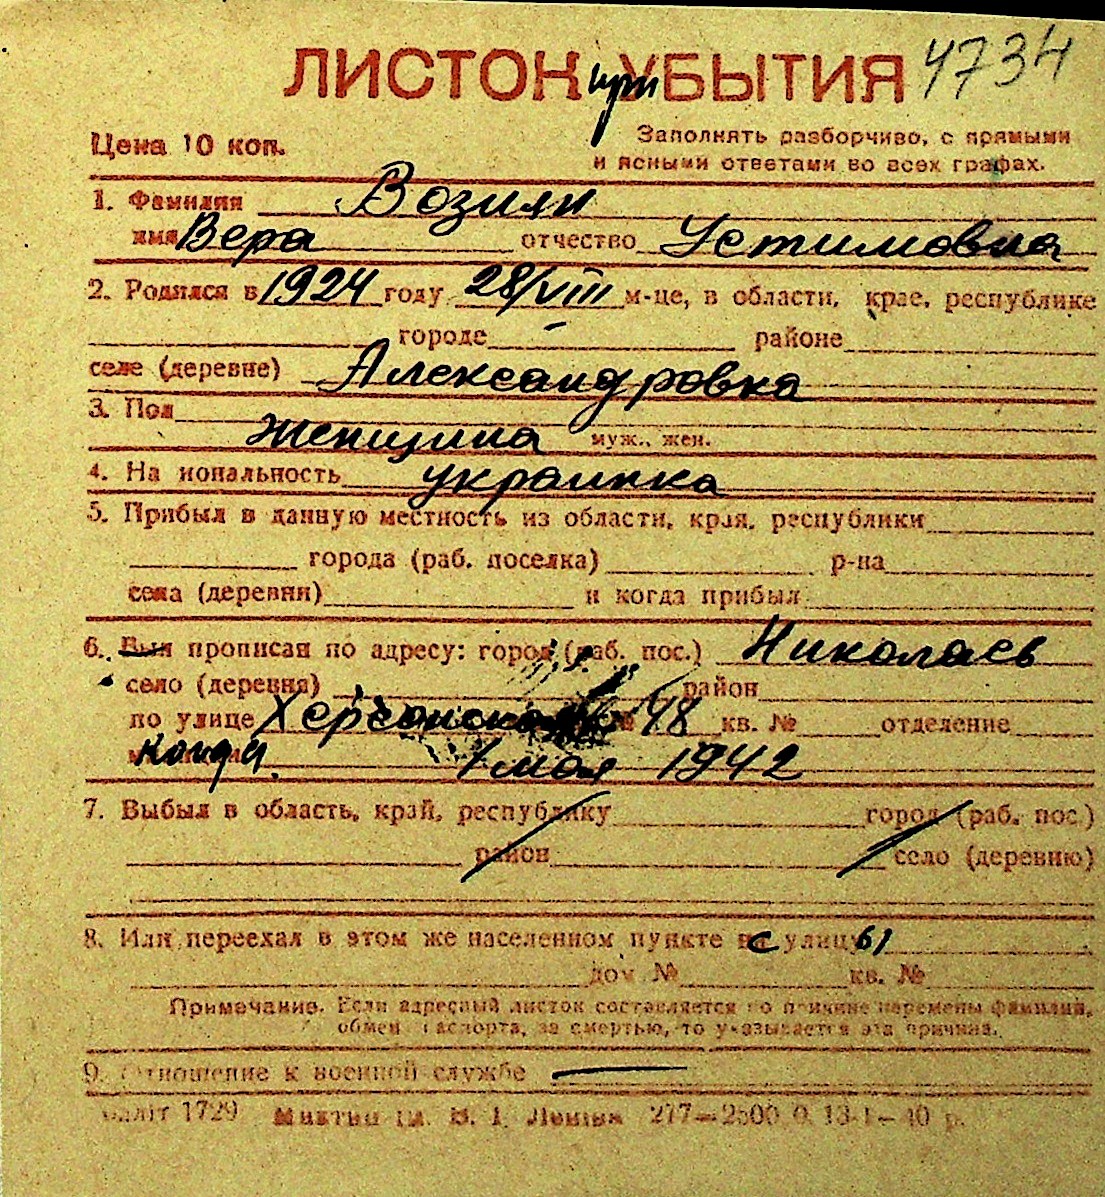 ЛИСТОК при УБЫТИЯ 4734
Цена 10 коп.
Заполнять разборчиво, с прямыми
и ясными ответами во всех графах.
1. Фамилия Возиян
имя Вера отчество Устимовна
2. Родился в 1924 году 28/VIII м-це, в области, крае, республике
городе - районе
селе (деревне) Александровка
3. Пол
женщина муж., жен.
4. На иональность украинка
5. Прибыл в данную местность из области, края, республики
города (раб. поселка) р-на
села (деревни) и когда прибыл
6. Был прописан по адресу: город (раб. пос.) Николаев
село (деревня) район
по улице Херсонская № 48 кв. № отделение
Когда 1 мая 1942
7. Выбыл в область, край, республику город (раб. пос.)
район село (деревню)
8. Или переехал в этом же населенном пункте с улицу
дом № кв. №
Примечание. Если адресный листок составляется по причине перемены фамилий,
обмен паспорта, за смертью, то указывается эта причина.
9. Отношение к военной службе —
1729 277—2500 0 13-1—40 р.